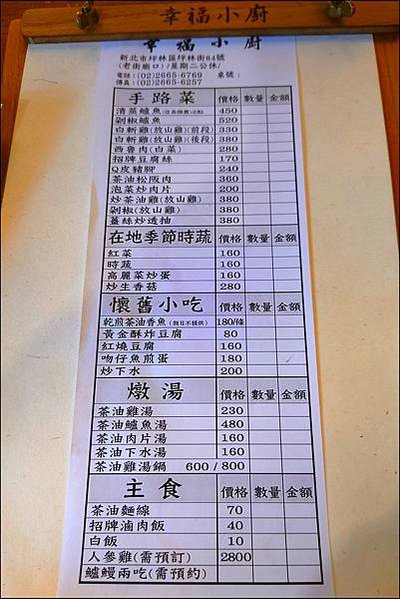 幸福小廚
幸福小廚
新北市坪林區坪林街84號
(老街廟口)/星期二公休/
電話:(02)2665-6769 桌號:
傳真:(02)2665-6257
手路菜 價格 數量 金額
清蒸鱸魚 450
剁椒鱸魚 520
白斬雞(放山雞)(前段) 330
白斬雞(放山雞)(後段) 380
西魯肉(白菜) 280
招牌豆腐絲 170
Q皮豬腳 240
茶油松阪肉 360
泡菜炒肉片 200
炒茶油雞(放山雞) 380
剁椒(放山雞) 380
薑絲炒透抽 380
在地季節時蔬 價格 數量 金額
紅菜 160
時蔬 160
高麗菜炒蛋 160
炒生香菇 280
懷舊小吃 價格 數量 金額
乾煎茶油香魚(假日不提供) 180/條
黃金酥炸豆腐 80
紅燒豆腐 160
吻仔魚煎蛋 180
炒下水 200
燉湯 價格 數量 金額
茶油雞湯 230
茶油鱸魚湯 480
茶油肉片湯 160
茶油下水湯 160
茶油雞湯鍋 600/800
主食 價格 數量 金額
茶油麵線 70
招牌滷肉飯 40
白飯 10
人參雞(需預訂) 2800
鱸鰻兩吃(需預約)